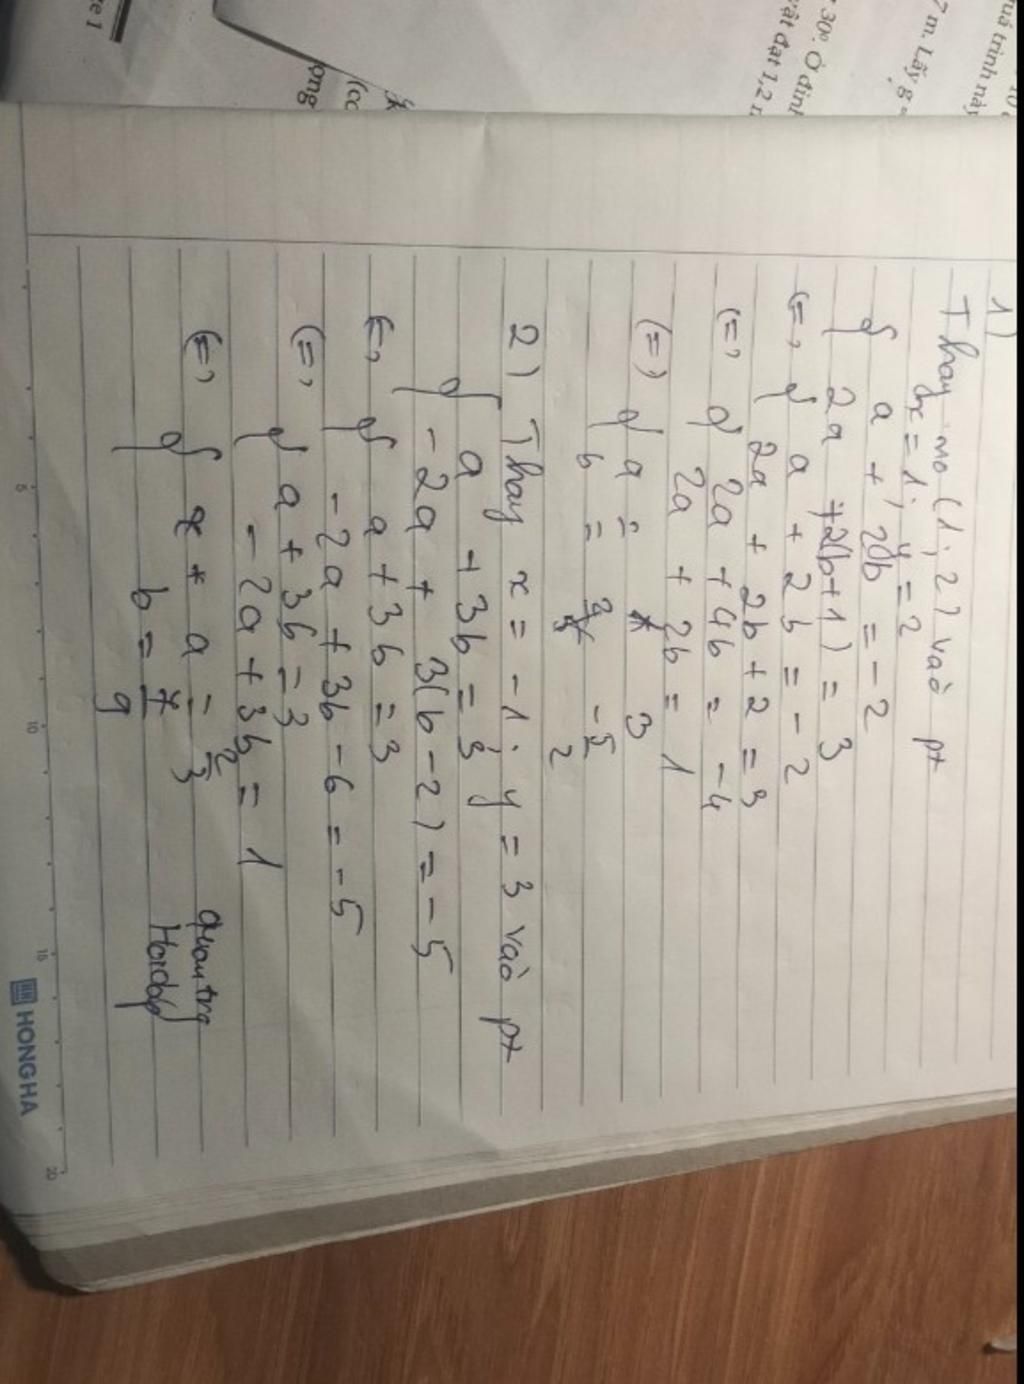 1)
Thay no (1; 2) vào pt
x = 1; y = 2
a + 2b = -2
2a + 2(b+1) = 3
(=) a + 2b = -2
2a + 2b + 2 = 3
(=) 2a + 4b = -4
2a + 2b = 1
(=) a = 3
b = -5/2
2) Thay x = -1; y = 3 vào pt
a + 3b = 3
-2a + 3(b-2) = -5
(=) a + 3b = 3
-2a + 3b - 6 = -5
(=) a + 3b = 3
-2a + 3b = 1
(=) a = 2/3
b = 7/9
quantrg
Hoidap
HONG HA
5 10 15 20
quá trình này
7 m. Lấy g
30°. Ở đỉnh
vật đạt 1,2
ong
(cc
re 1